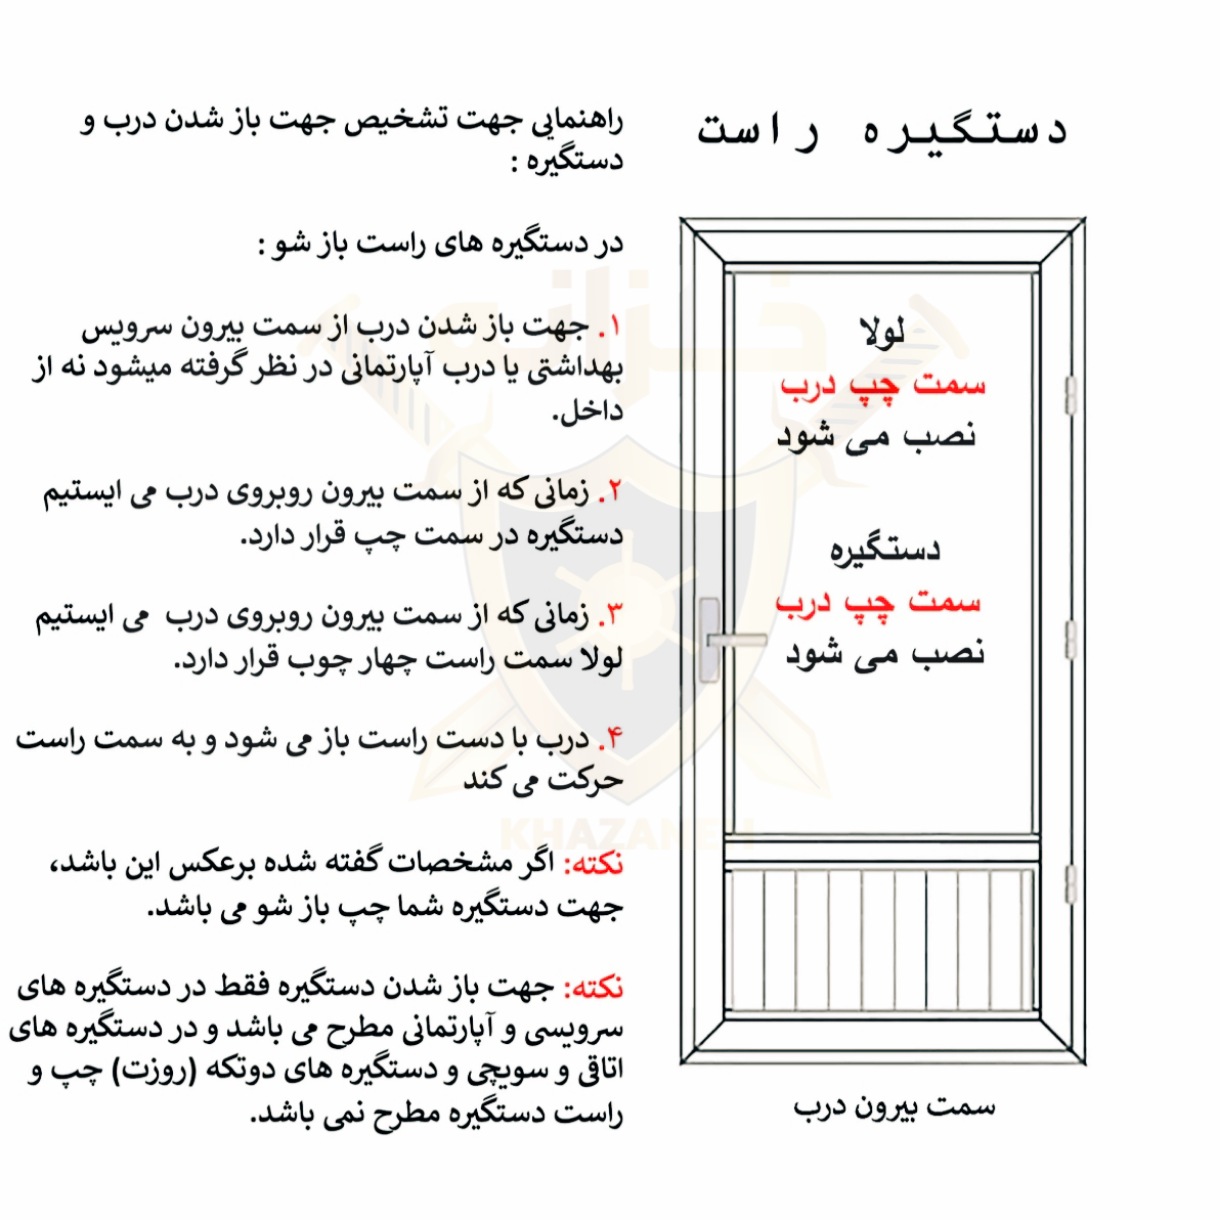 دستگیره راست
راهنمایی جهت تشخیص جهت باز شدن درب و
دستگیره :
در دستگیره های راست باز شو :
۱. جهت باز شدن درب از سمت بیرون سرویس
بهداشتی یا درب آپارتمانی در نظر گرفته میشود نه از
داخل.
۲. زمانی که از سمت بیرون روبروی درب می ایستیم
دستگیره در سمت چپ قرار دارد.
۳. زمانی که از سمت بیرون روبروی درب می ایستیم
لولا سمت راست چهار چوب قرار دارد.
۴. درب با دست راست باز می شود و به سمت راست
حرکت می کند
نکته: اگر مشخصات گفته شده برعکس این باشد،
جهت دستگیره شما چپ باز شو می باشد.
نکته: جهت باز شدن دستگیره فقط در دستگیره های
سرویسی و آپارتمانی مطرح می باشد و در دستگیره های
اتاقی و سویچی و دستگیره های دوتکه (روزت) چپ و
راست دستگیره مطرح نمی باشد.
لولا
سمت چپ درب
نصب می شود
دستگیره
سمت چپ درب
نصب می شود
سمت بیرون درب
خزانه
KHAZANEH